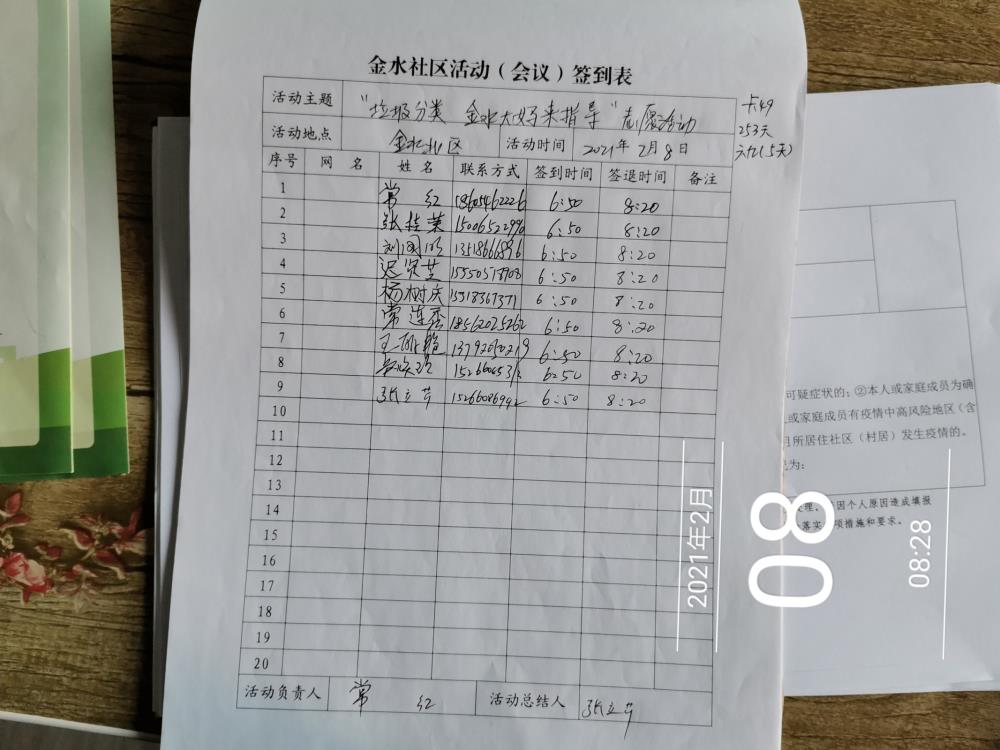 金水社区活动(会议)签到表
活动主题 “垃圾分类 金水大妈来指导”志愿活动
卡49
253天
六九(5天)
活动地点 金水社区 活动时间 2021年2月8日
序号 网名 姓名 联系方式 签到时间 签退时间 备注
1 常红 18605462226 6:50 8:20
2 张桂荣 15006522996 6:50 8:20
3 6:50 8:20
4 6:50 8:20
5 杨树庆 6:50 8:20
6 常连香 18562025262 6:50 8:20
7 6:50 8:20
8 6:50 8:20
9 张立芹 15266086942 6:50 8:20
10
11
12
13
14
15
16
17
18
19
20
活动负责人 常红 活动总结人 张立芹
可疑症状的;②本人或家庭成员为确
或家庭成员有疫情中高风险地区(含
月所居住社区(村居)发生疫情的。
为:
因个人原因造成填报
落实 项措施和要求。
2021年2月
08
08:28